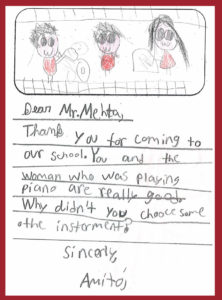 Dear Mr. Mehta,
Thank you for coming to
our school. You and the
woman who was playing
piano are really good.
Why didn't you choose some
othe insterment?
Sincerly,
Amitoj